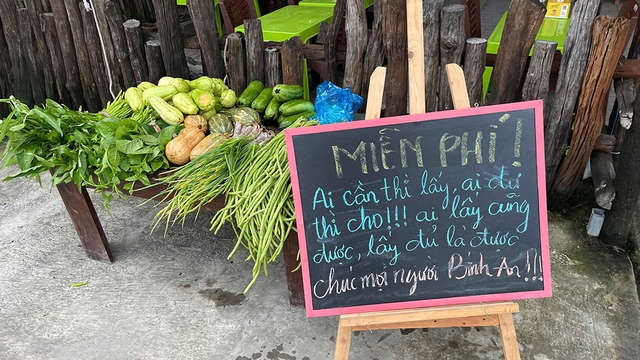 MIỄN PHÍ!
Ai cần thì lấy, ai dư
thì cho!!! ai lấy cũng
được, lấy đủ là được
chúc mọi người Bình An!!!